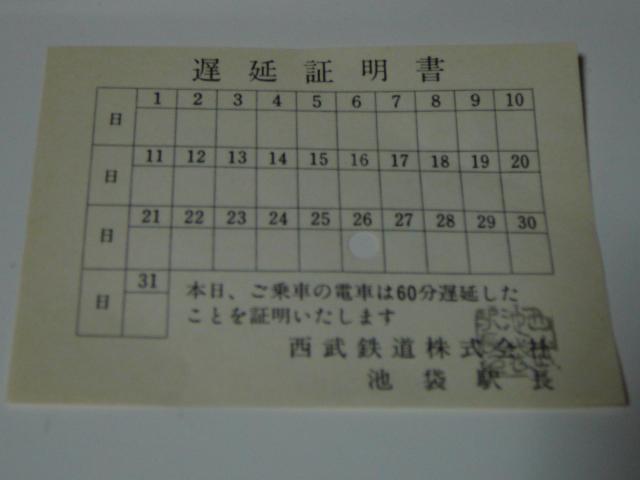 遅延証明書
日 1 2 3 4 5 6 7 8 9 10
日 11 12 13 14 15 16 17 18 19 20
日 21 22 23 24 25 26 27 28 29 30
日 31
本日、ご乗車の電車は60分遅延した
ことを証明いたします
西武鉄道株式会社
池袋駅長